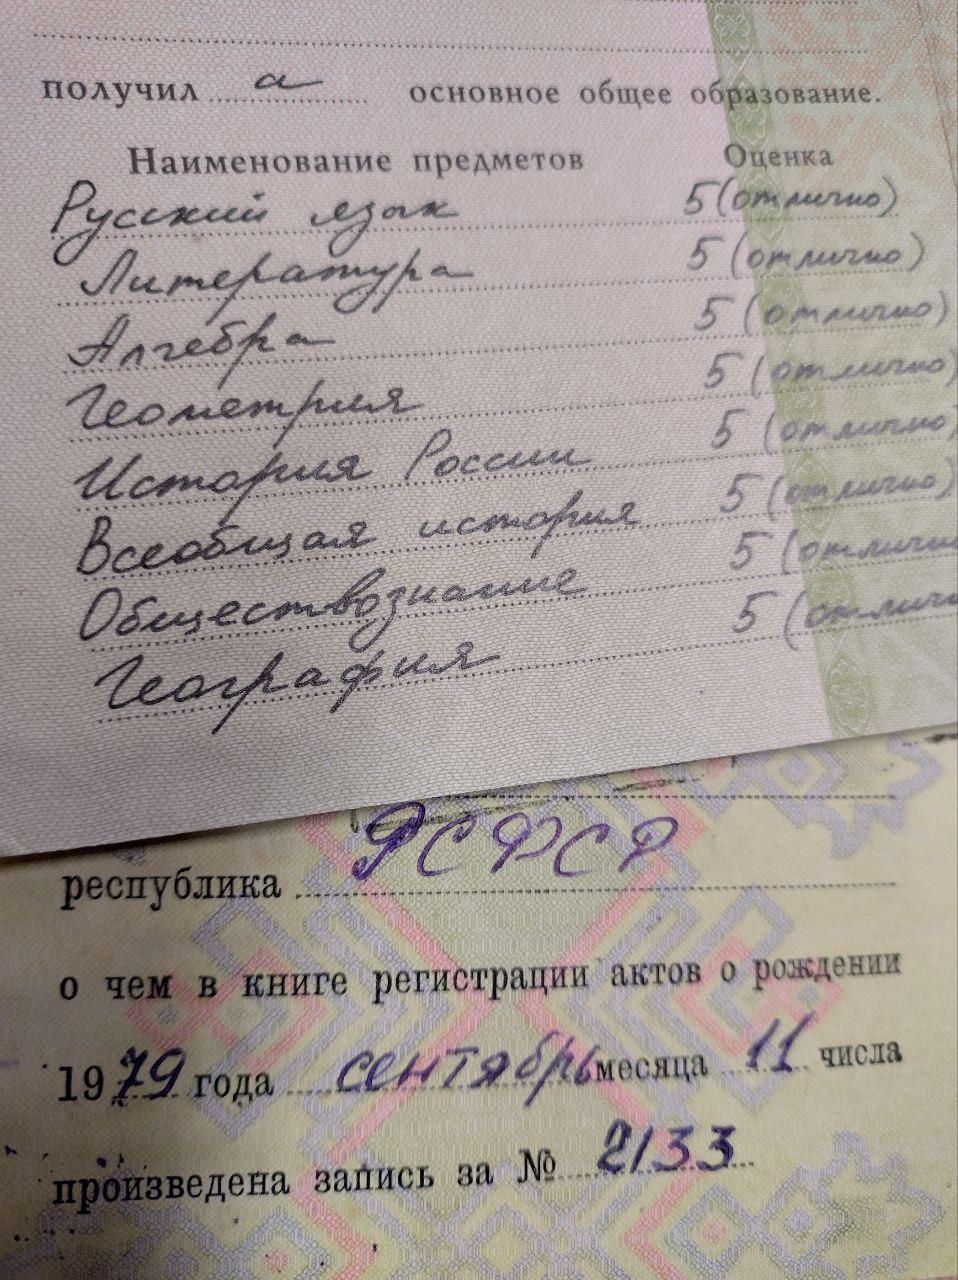 получил а основное общее образование.
Наименование предметов Оценка
Русский язык 5 (отлично)
Литература 5 (отлично)
Алгебра 5 (отлично)
Геометрия 5 (отлично)
История России 5 (отлично)
Всеобщая история 5 (отлично)
Обществознание 5 (отлично
География 5 (отличн
республика РСФСР
о чем в книге регистрации актов о рождении
1979 года сентябрь месяца 11 числа
произведена запись за № 2133